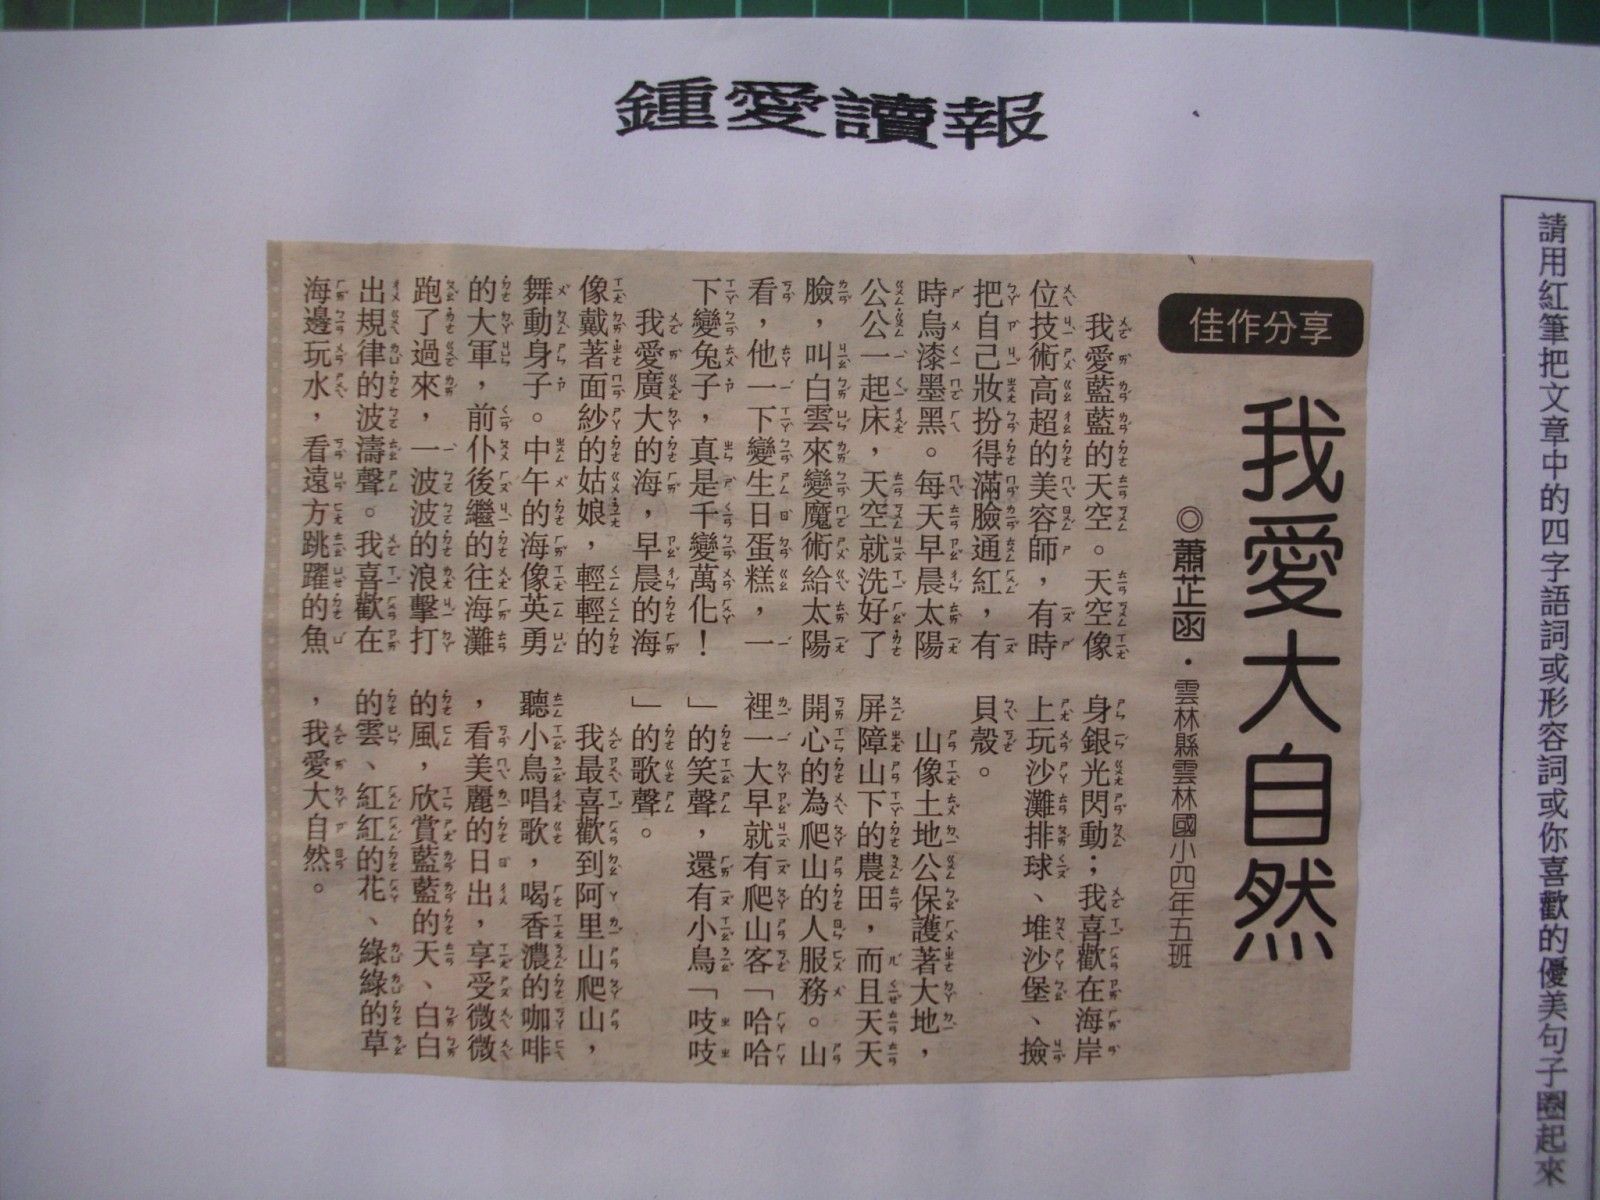 鍾愛讀報
請用紅筆把文章中的四字語詞或形容詞或你喜歡的優美句子圈起來
佳作分享
我愛大自然
◎蕭芷函・雲林縣雲林國小四年五班
我愛藍藍的天空。天空像
位技術高超的美容師，有時
把自己妝扮得滿臉通紅，有
時烏漆墨黑。每天早晨太陽
公公一起床，天空就洗好了
臉，叫白雲來變魔術給太陽
看，他一下變生日蛋糕，一
下變兔子，真是千變萬化！
我愛廣大的海，早晨的海
像戴著面紗的姑娘，輕輕的
舞動身子。中午的海像英勇
的大軍，前仆後繼的往海灘
跑了過來，一波波的浪擊打
出規律的波濤聲。我喜歡在
海邊玩水，看遠方跳躍的魚
身銀光閃動；我喜歡在海岸
上玩沙灘排球、堆沙堡、撿
貝殼。
山像土地公保護著大地，
屏障山下的農田，而且天天
開心的為爬山的人服務。山
裡一大早就有爬山客「哈哈
」的笑聲，還有小鳥「吱吱
」的歌聲。
我最喜歡到阿里山爬山，
聽小鳥唱歌，喝香濃的咖啡
，看美麗的日出，享受微微
的風，欣賞藍藍的天、白白
的雲、紅紅的花、綠綠的草
，我愛大自然。